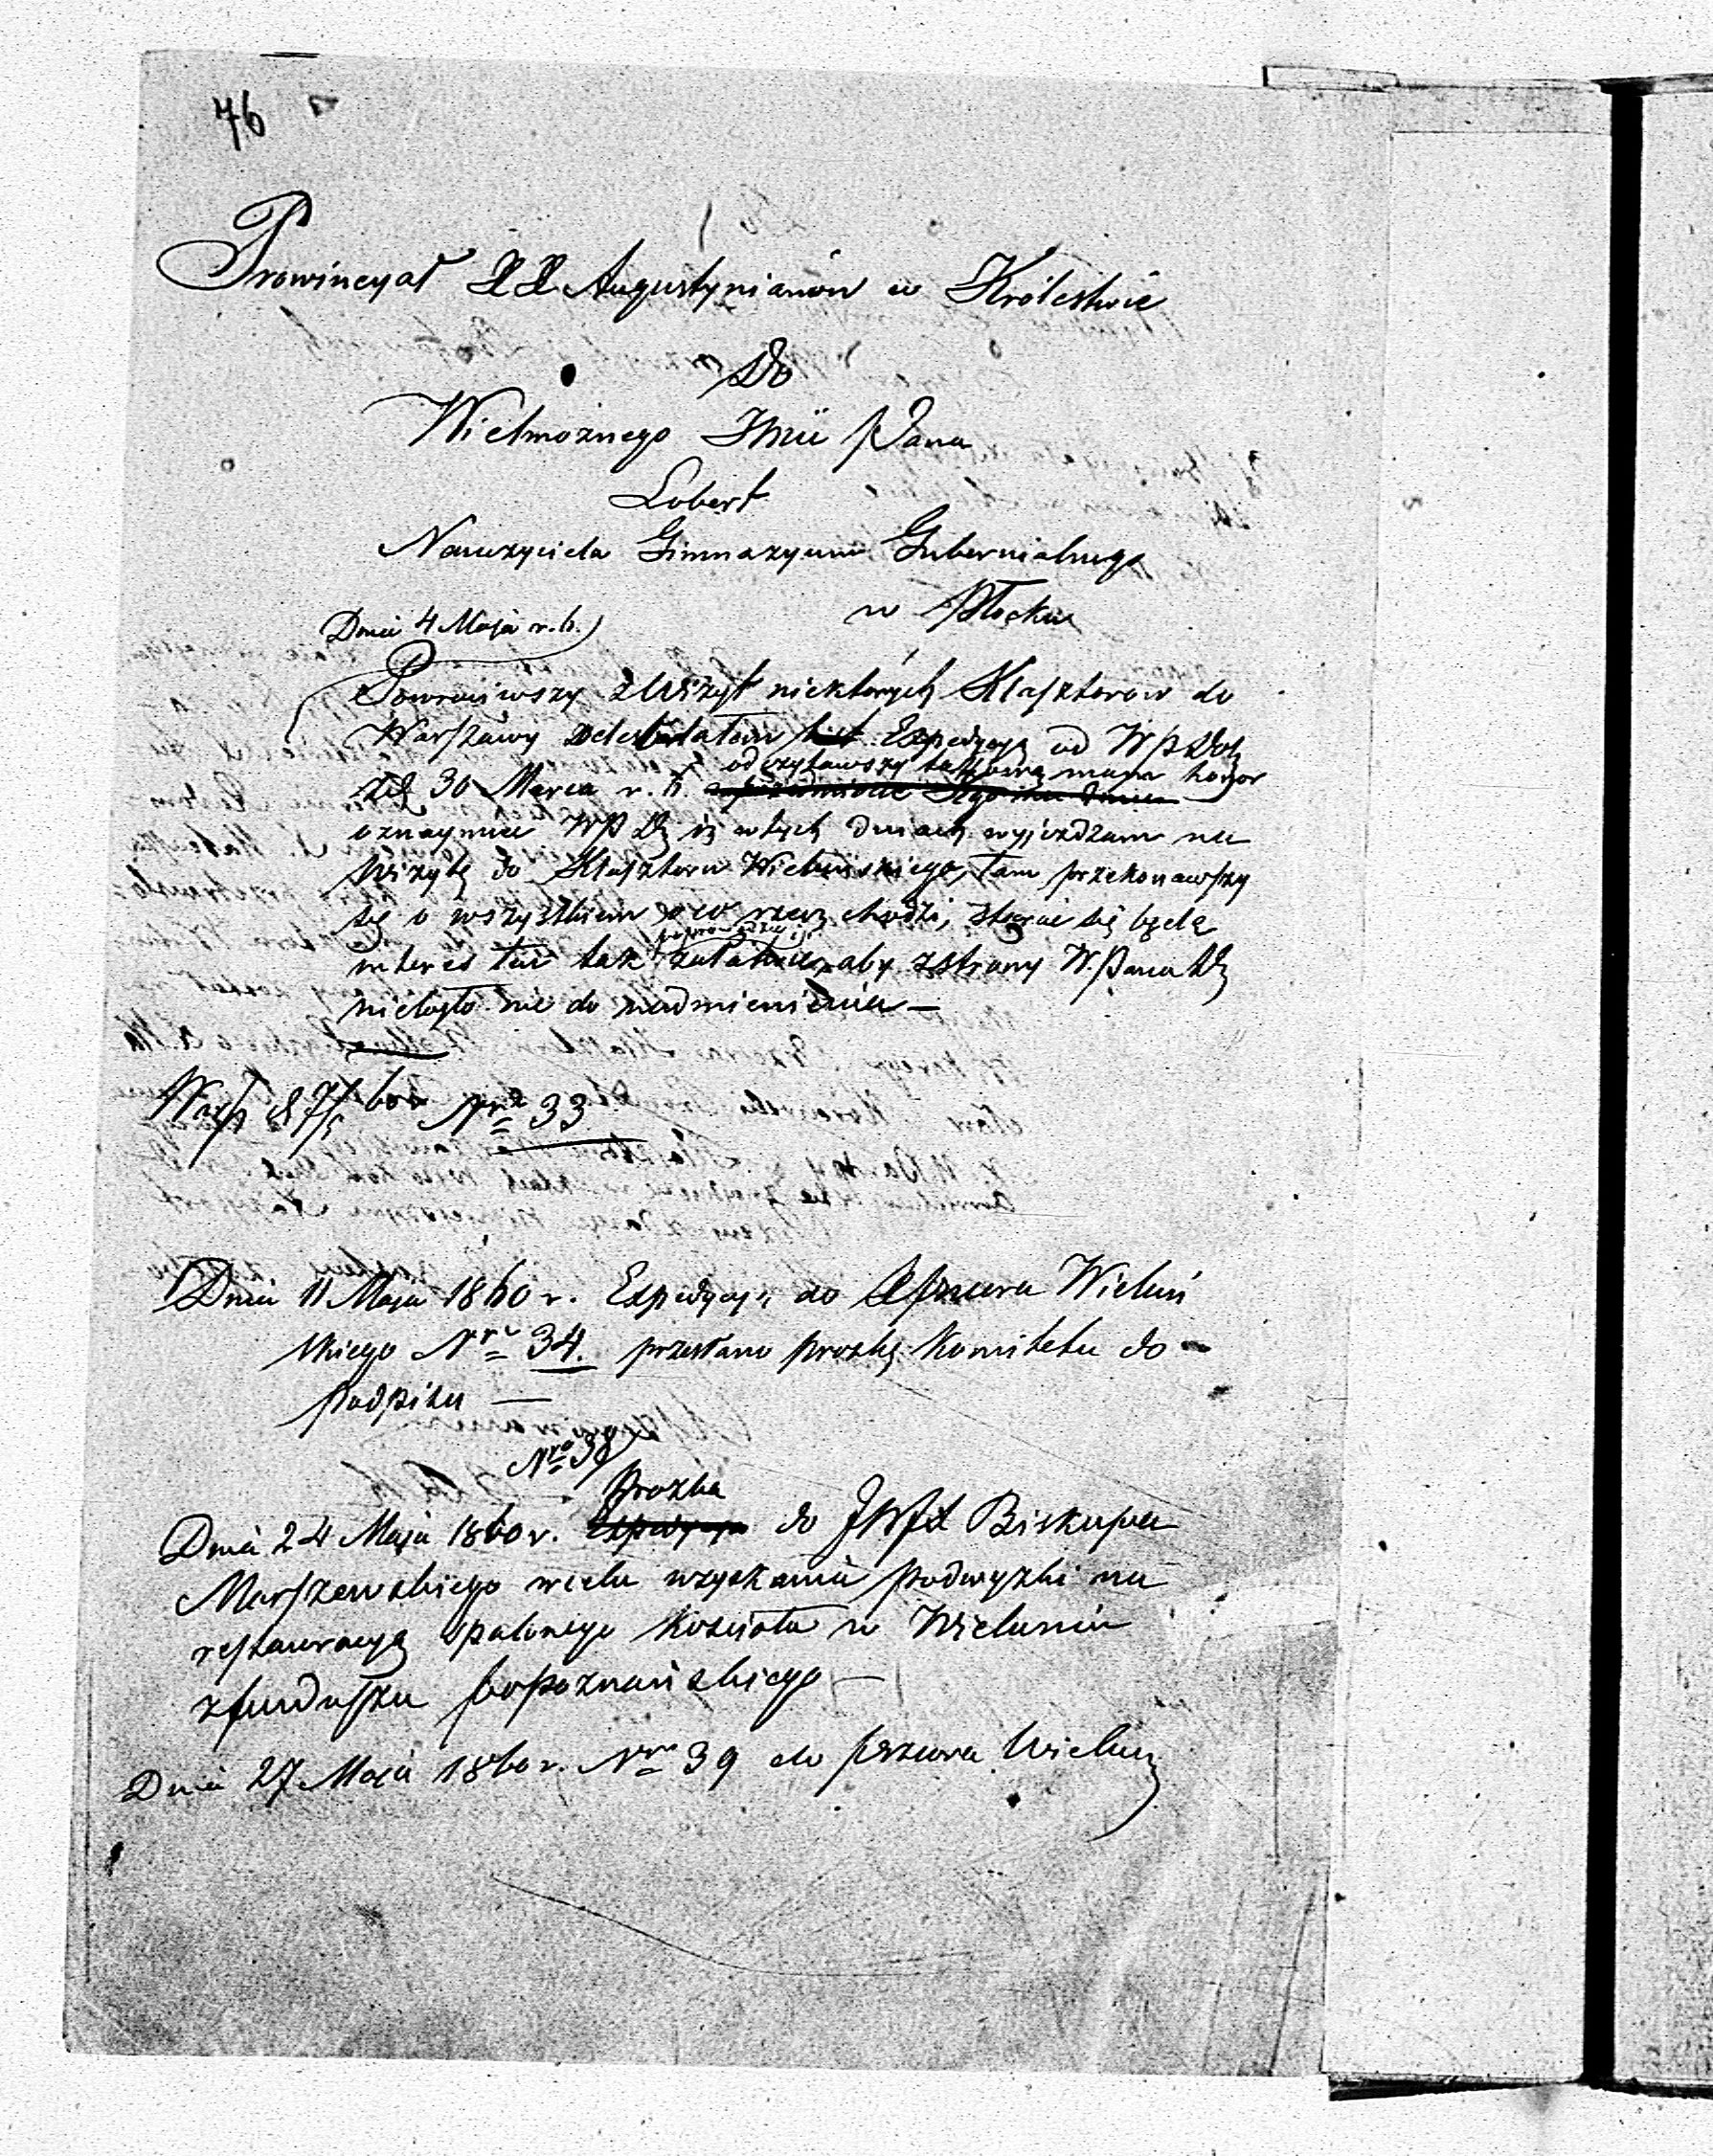 76
Prowincyał XX Augustynianów w Królestwie
Do
Wielmożnego Jmci Pana
Lobert
Nauczyciela Gimnazyum Gubernialnego
w Płocku
Dnia 4 Maja r. b.
Powróciwszy z Wizyt niektórych Klasztorów do
Warszawy odebrałem Expedycyą od WP Dob
30 Marca r. b. odczytawszy takową mam honor
oznaymić WP Dz iż w tych dniach wyjeżdżam na
Wizytę do Klasztoru Wieluńskiego, tam przekonawszy
się o wszystkiem o co rzecz chodzi, starać się będę
interes ten tak załatwić, aby z strony W. Pana Dz
nie było nic do nadmienienia —
Warsz d 7/5 60 r Nro 33
Dnia 11 Maja 1860 r. Expedycyą do Xprzeora Wieluń
skiego Nro 34. przesłano prozbę Komitetu do
podpisu —
Nro 38
Prozba
Dnia 24 Maja 1860 r. Expedycya do JWJX Biskupa
Marszewskiego wcelu uzyskania podwyzki na
restauracyą spalonego Kościoła w Wieluniu
z funduszu popoznańskiego —
Dnia 27 Maja 1860 r. Nro 39 do przeora Wieluń